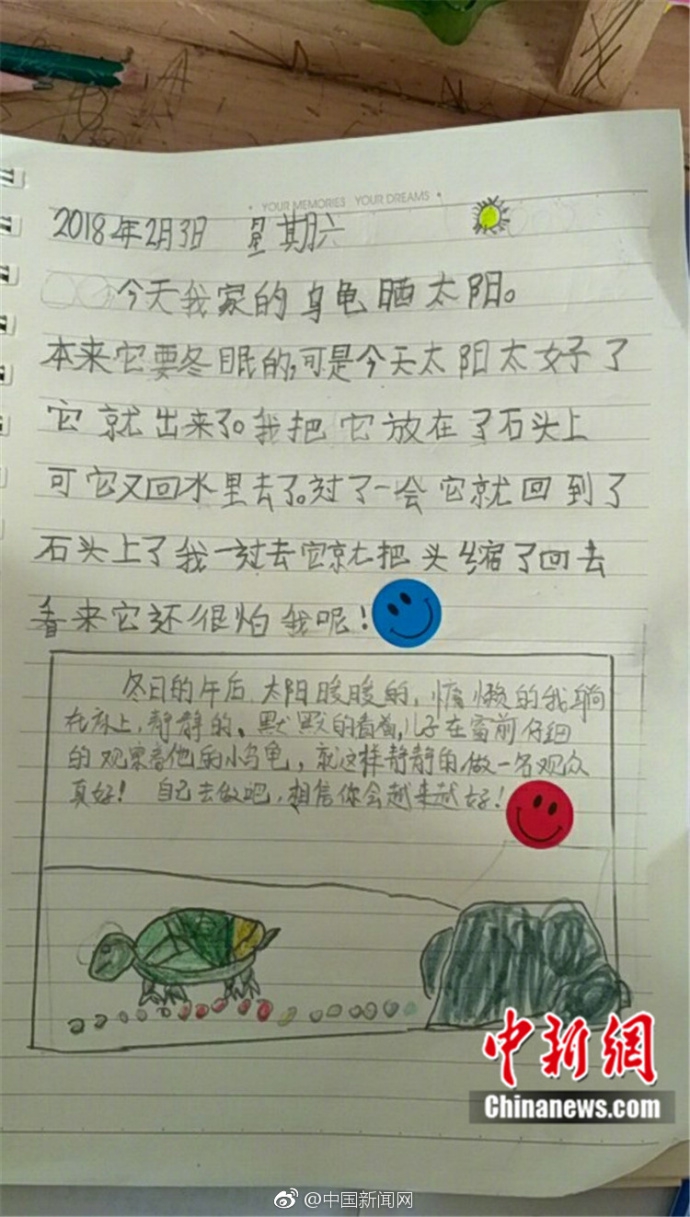 • YOUR MEMORIES YOUR DREAMS •
2018年2月3日 星期六
今天我家的乌龟晒太阳。
本来它要冬眠的,可是今天太阳太好了
它就出来了。我把它放在了石头上
可它又回水里去了。过了一会它就回到了
石头上了我一过去它就把头缩了回去
看来它还很怕我呢!
冬日的午后,太阳暖暖的,慵懒的我躺
在床上,静静的、默默的看着儿子在窗前仔细
的观察着他的小乌龟,就这样静静的做一名观众
真好! 自己去做吧,相信你会越来越好!
中新網
Chinanews.com
@中国新闻网